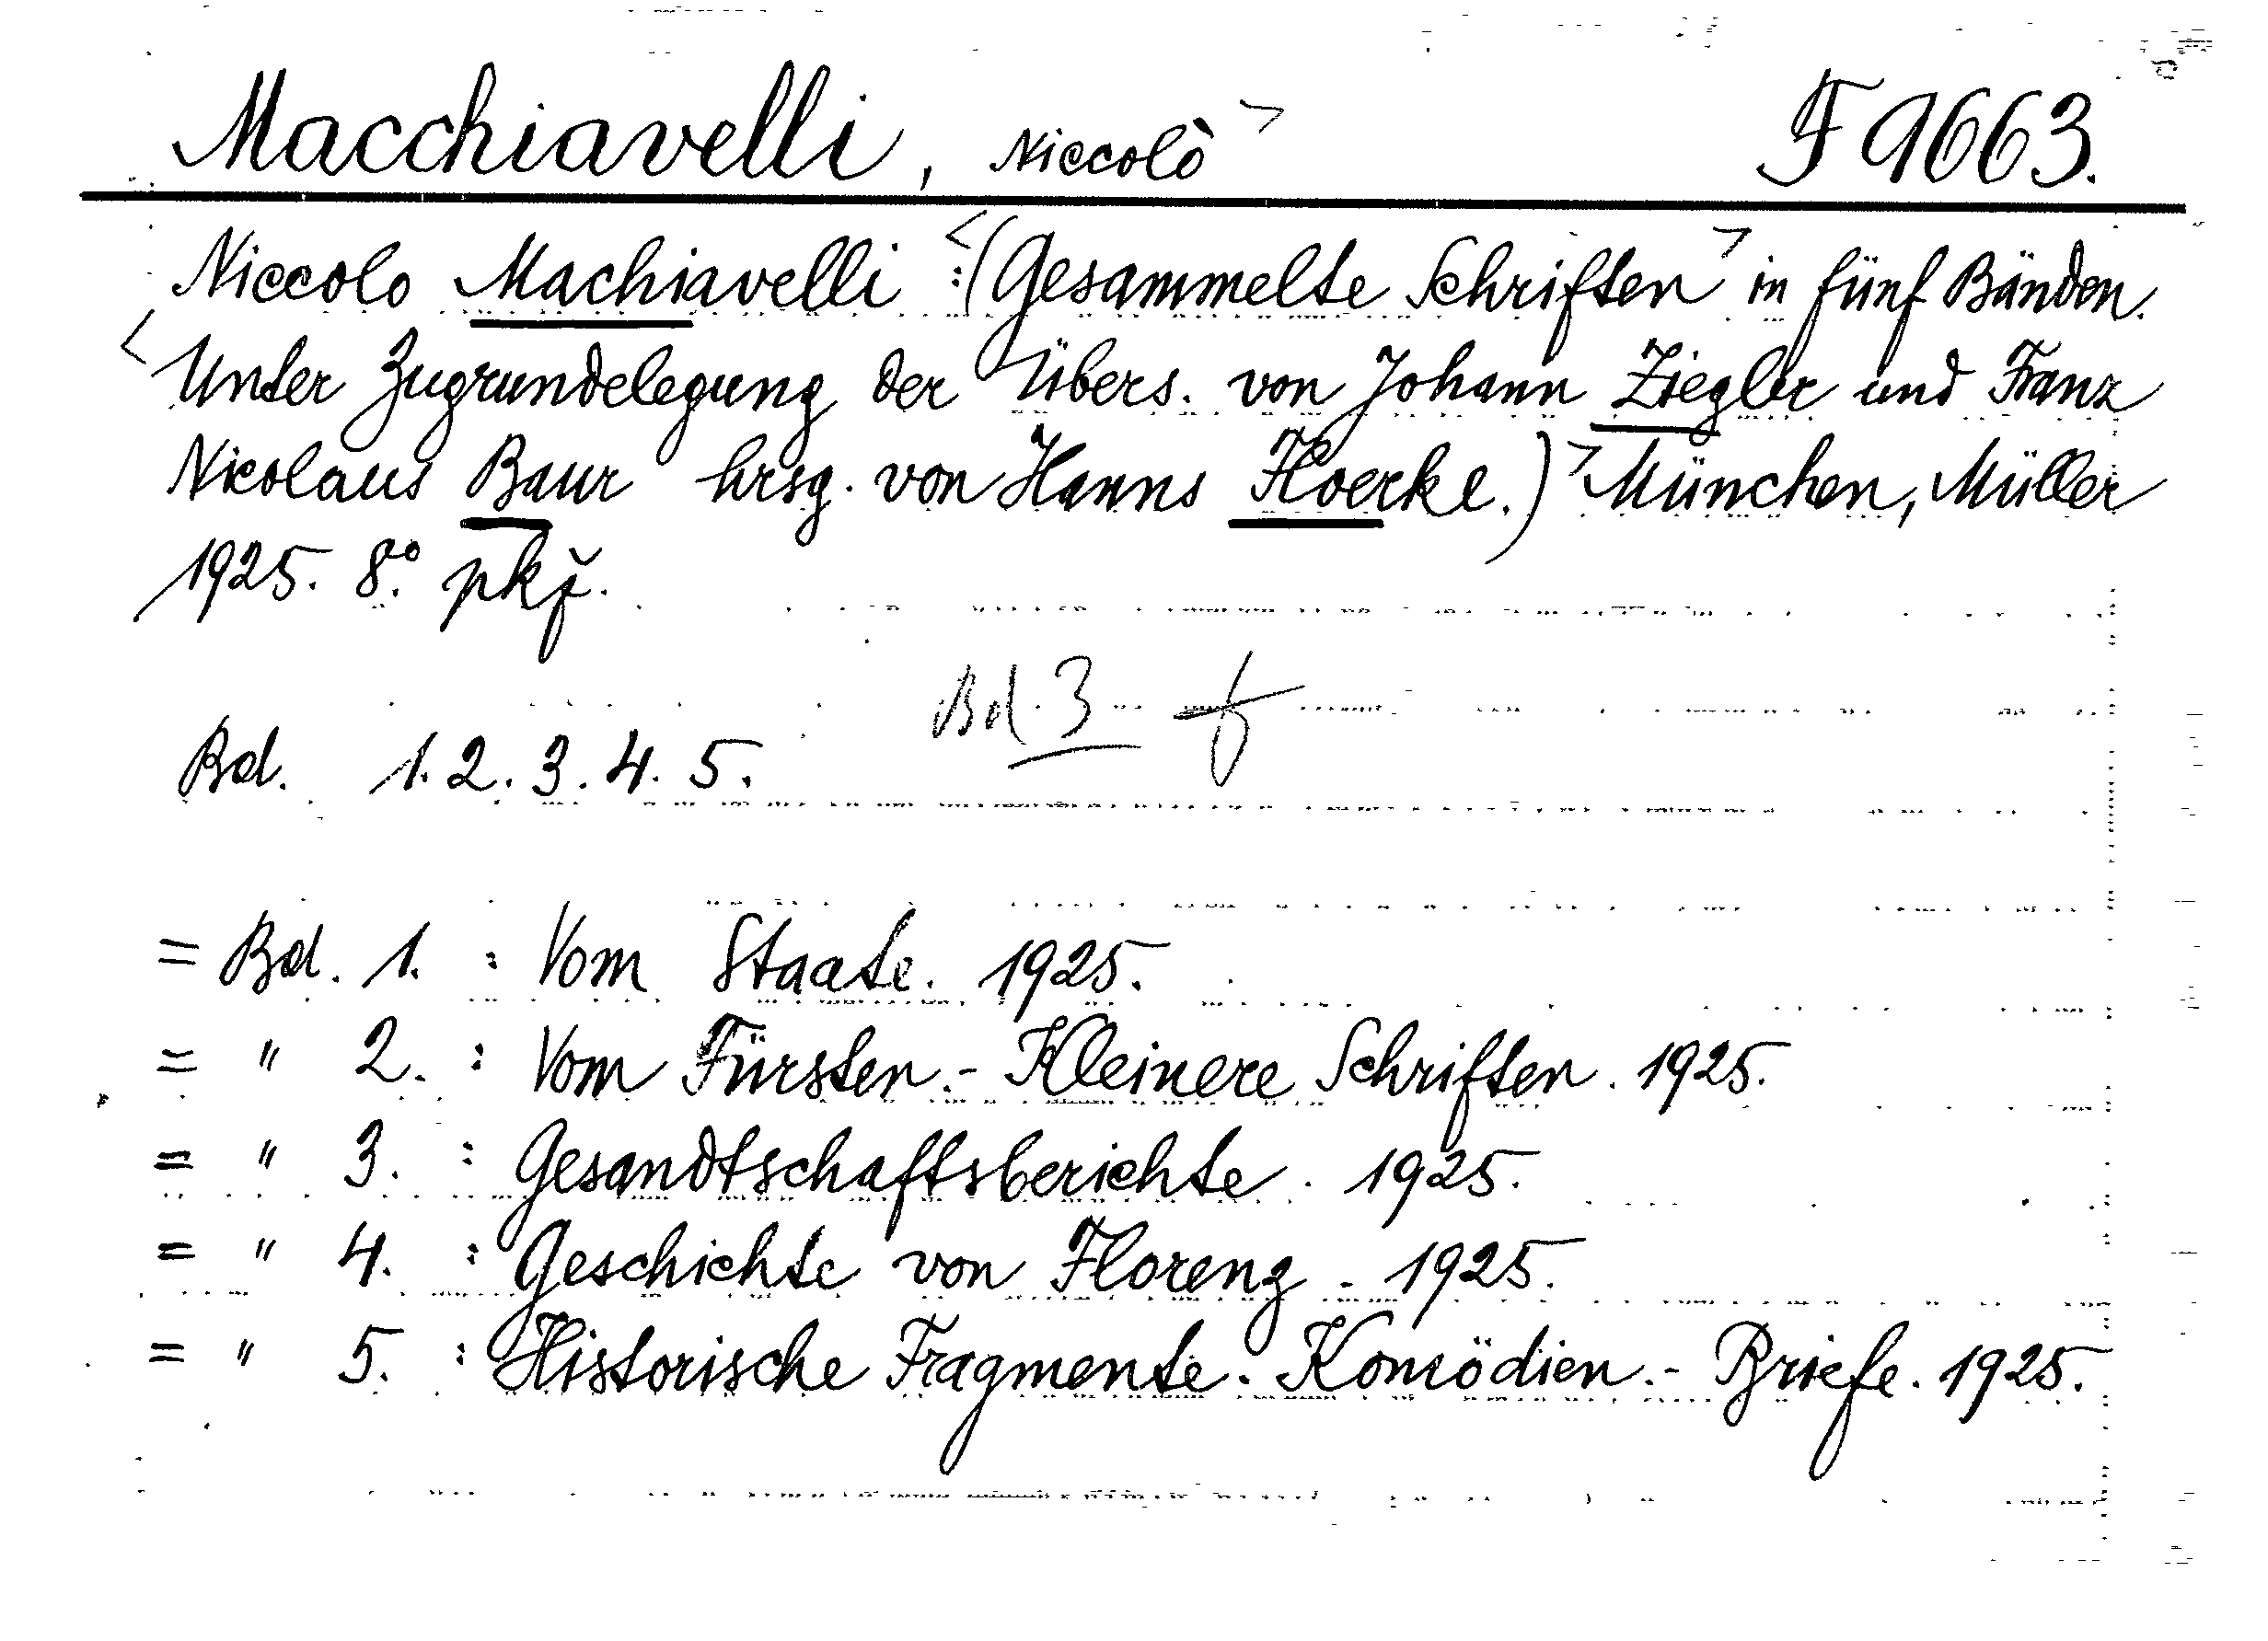 Macchiavelli, Niccolò> F 9663.
Niccolo Machiavelli <:(Gesammelte Schriften> in fünf Bänden.
<Unter Zugrundelegung der Übers. von Johann Ziegler und Franz
Nicolaus Baur hrsg. von Hanns Floerke.)> München, Müller
1925. 8°.
Bd 3
Bd. 1. 2. 3. 4. 5.
= Bd. 1. : Vom Staate. 1925.
= " 2. : Vom Fürsten.- Kleinere Schriften. 1925.
= " 3. : Gesandtschaftsberichte. 1925.
= " 4. : Geschichte von Florenz. 1925.
= " 5. : Historische Fragmente. Komödien.- Briefe. 1925.